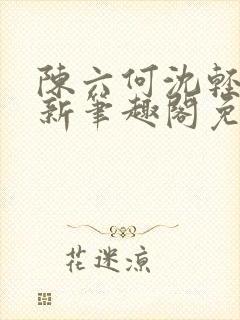 陳六何沈輕
新筆趣閣免
花迷凉